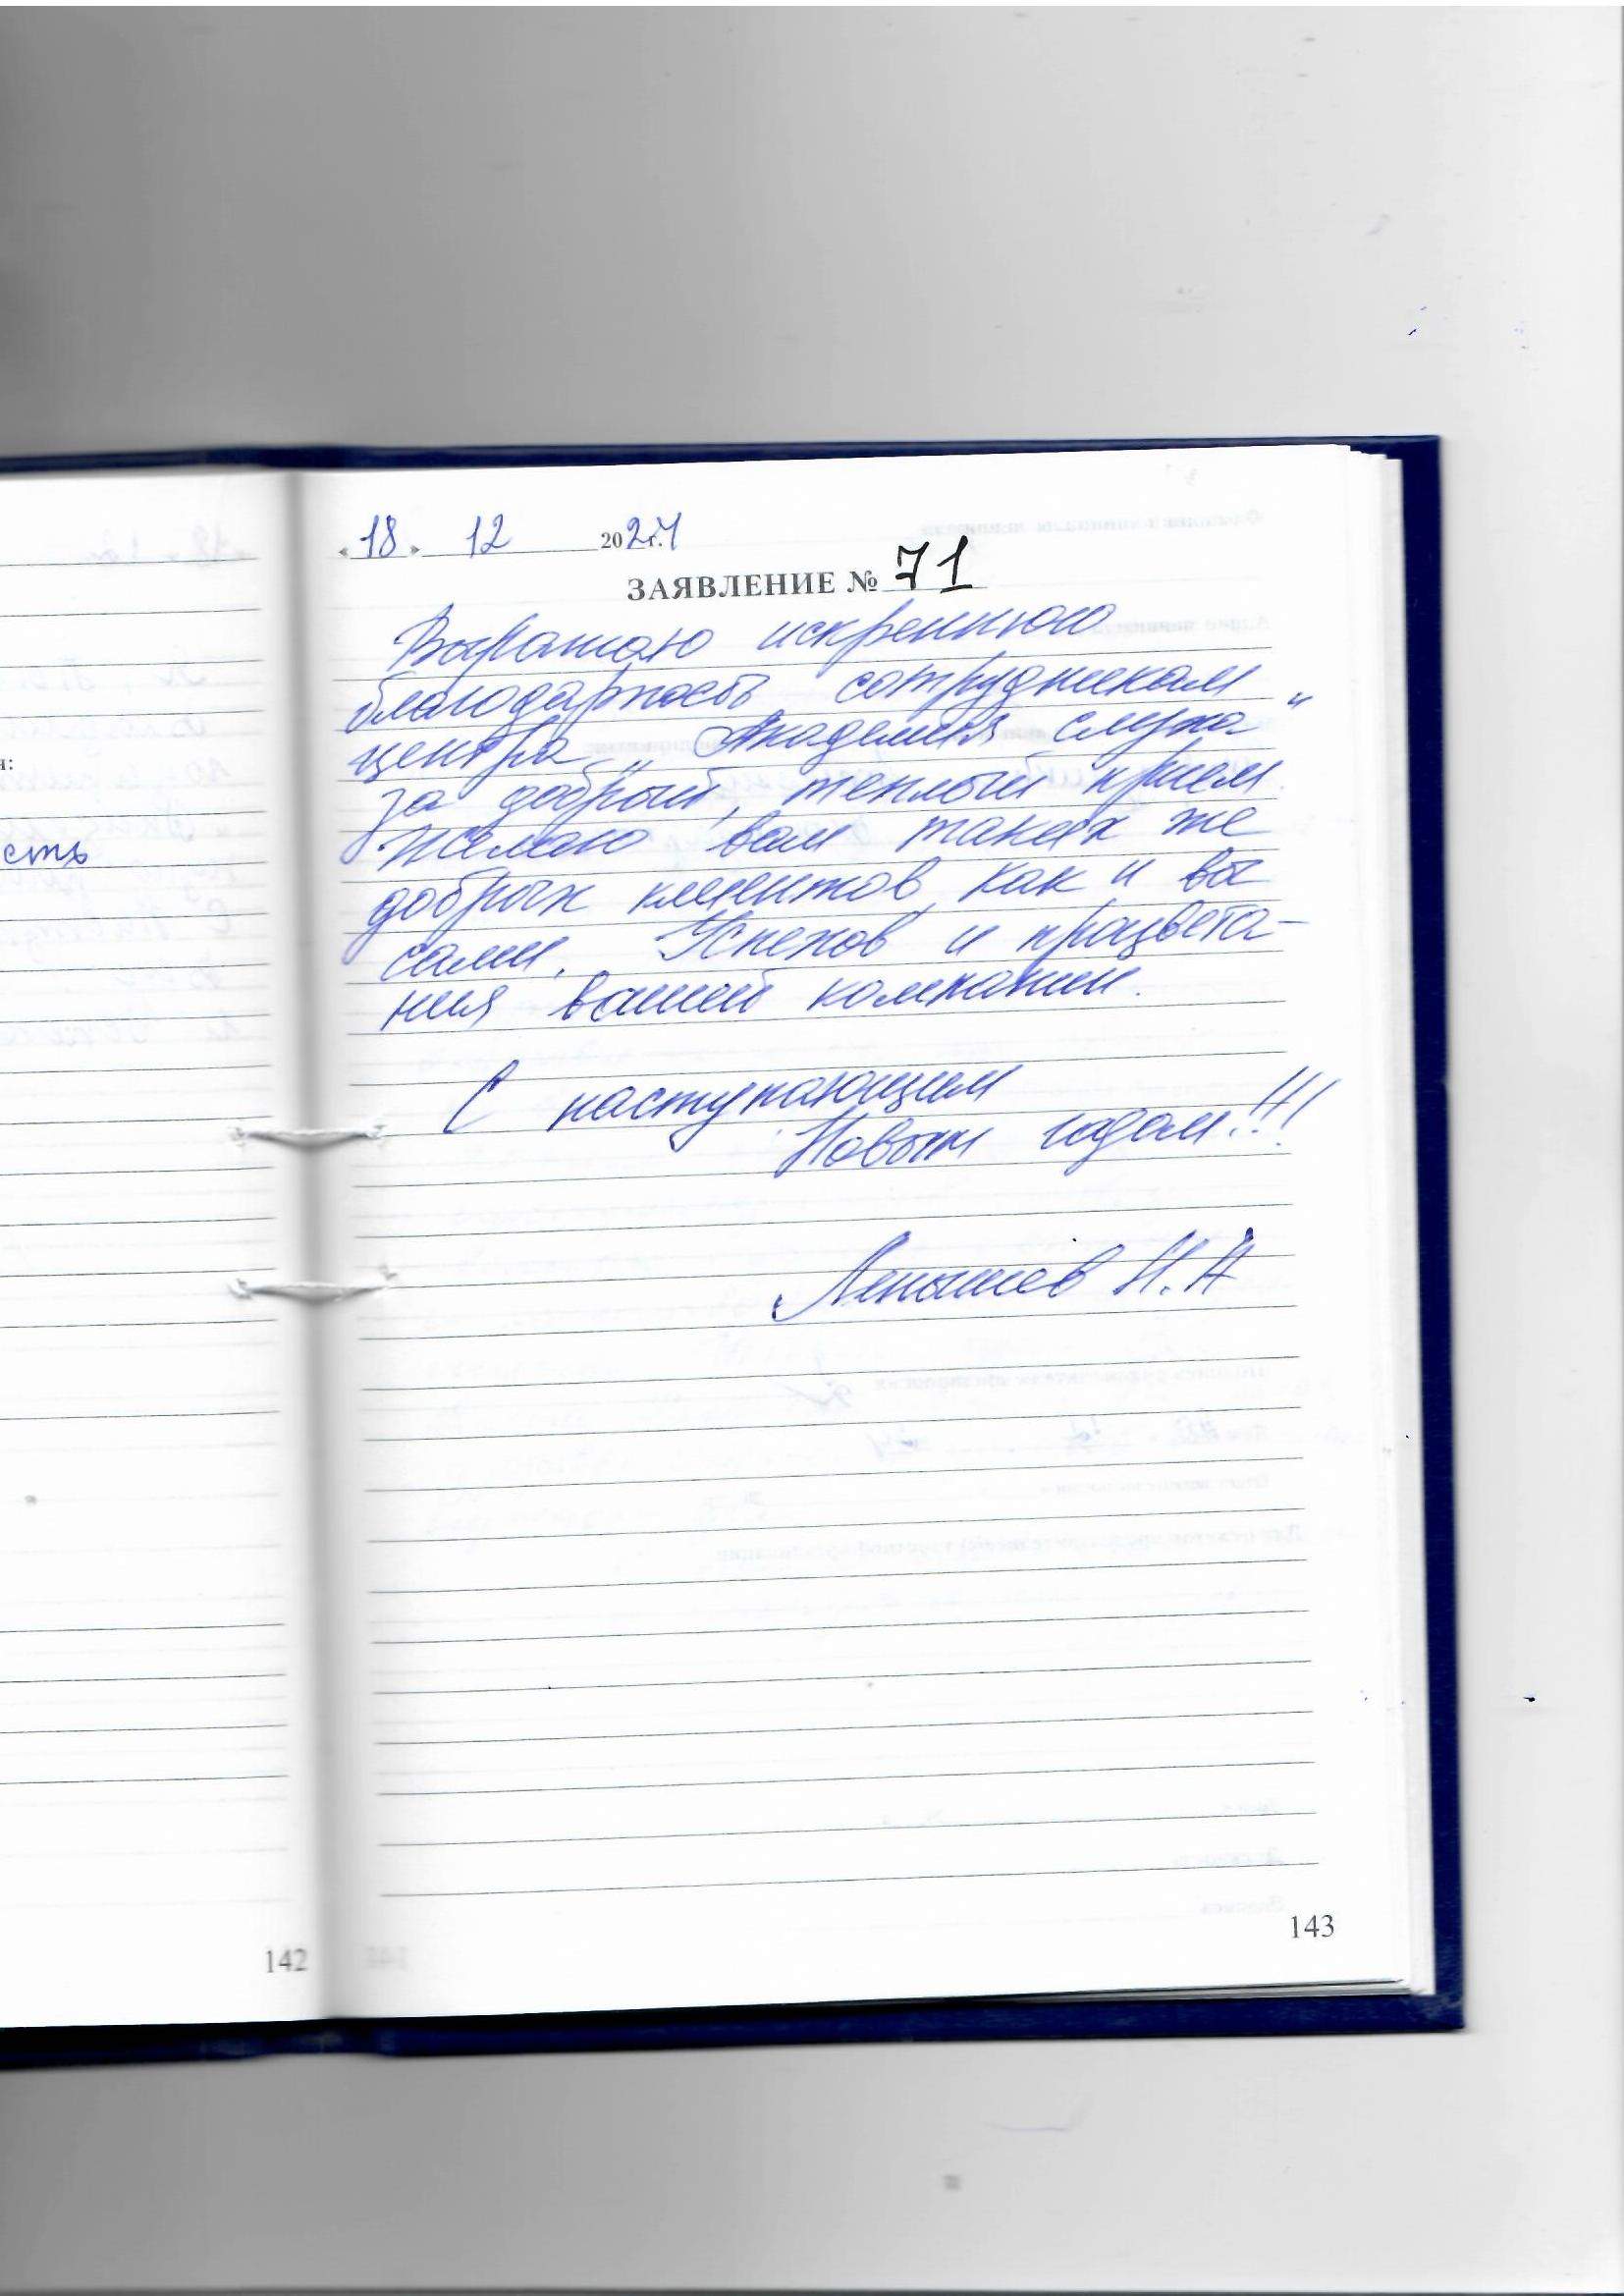 я:
сть
142
« 18 » 12 2024 г.
ЗАЯВЛЕНИЕ № 71
Выражаю искреннюю
благодарность сотрудникам
центра „Академия слуха"
за добрый, теплый прием.
Желаю вам таких же
добрых клиентов, как и вы
сами. Успехов и процвета-
ния вашей компании.
С наступающим
Новым годом!!!
Н. А
143